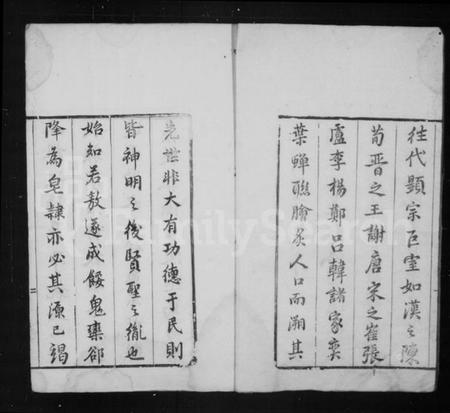 往代顯宗巨室如漢之陳
荀晋之王謝唐宋之崔張
盧李楊鄭呂韓諸家奕
葉蟬聯膾炙人口而溯其
先世非大有功德于民則
皆神明之後賢聖之胤也
始知若敖遂成餒鬼欒郤
降為皂隸亦必其源已竭
二
FamilySearch